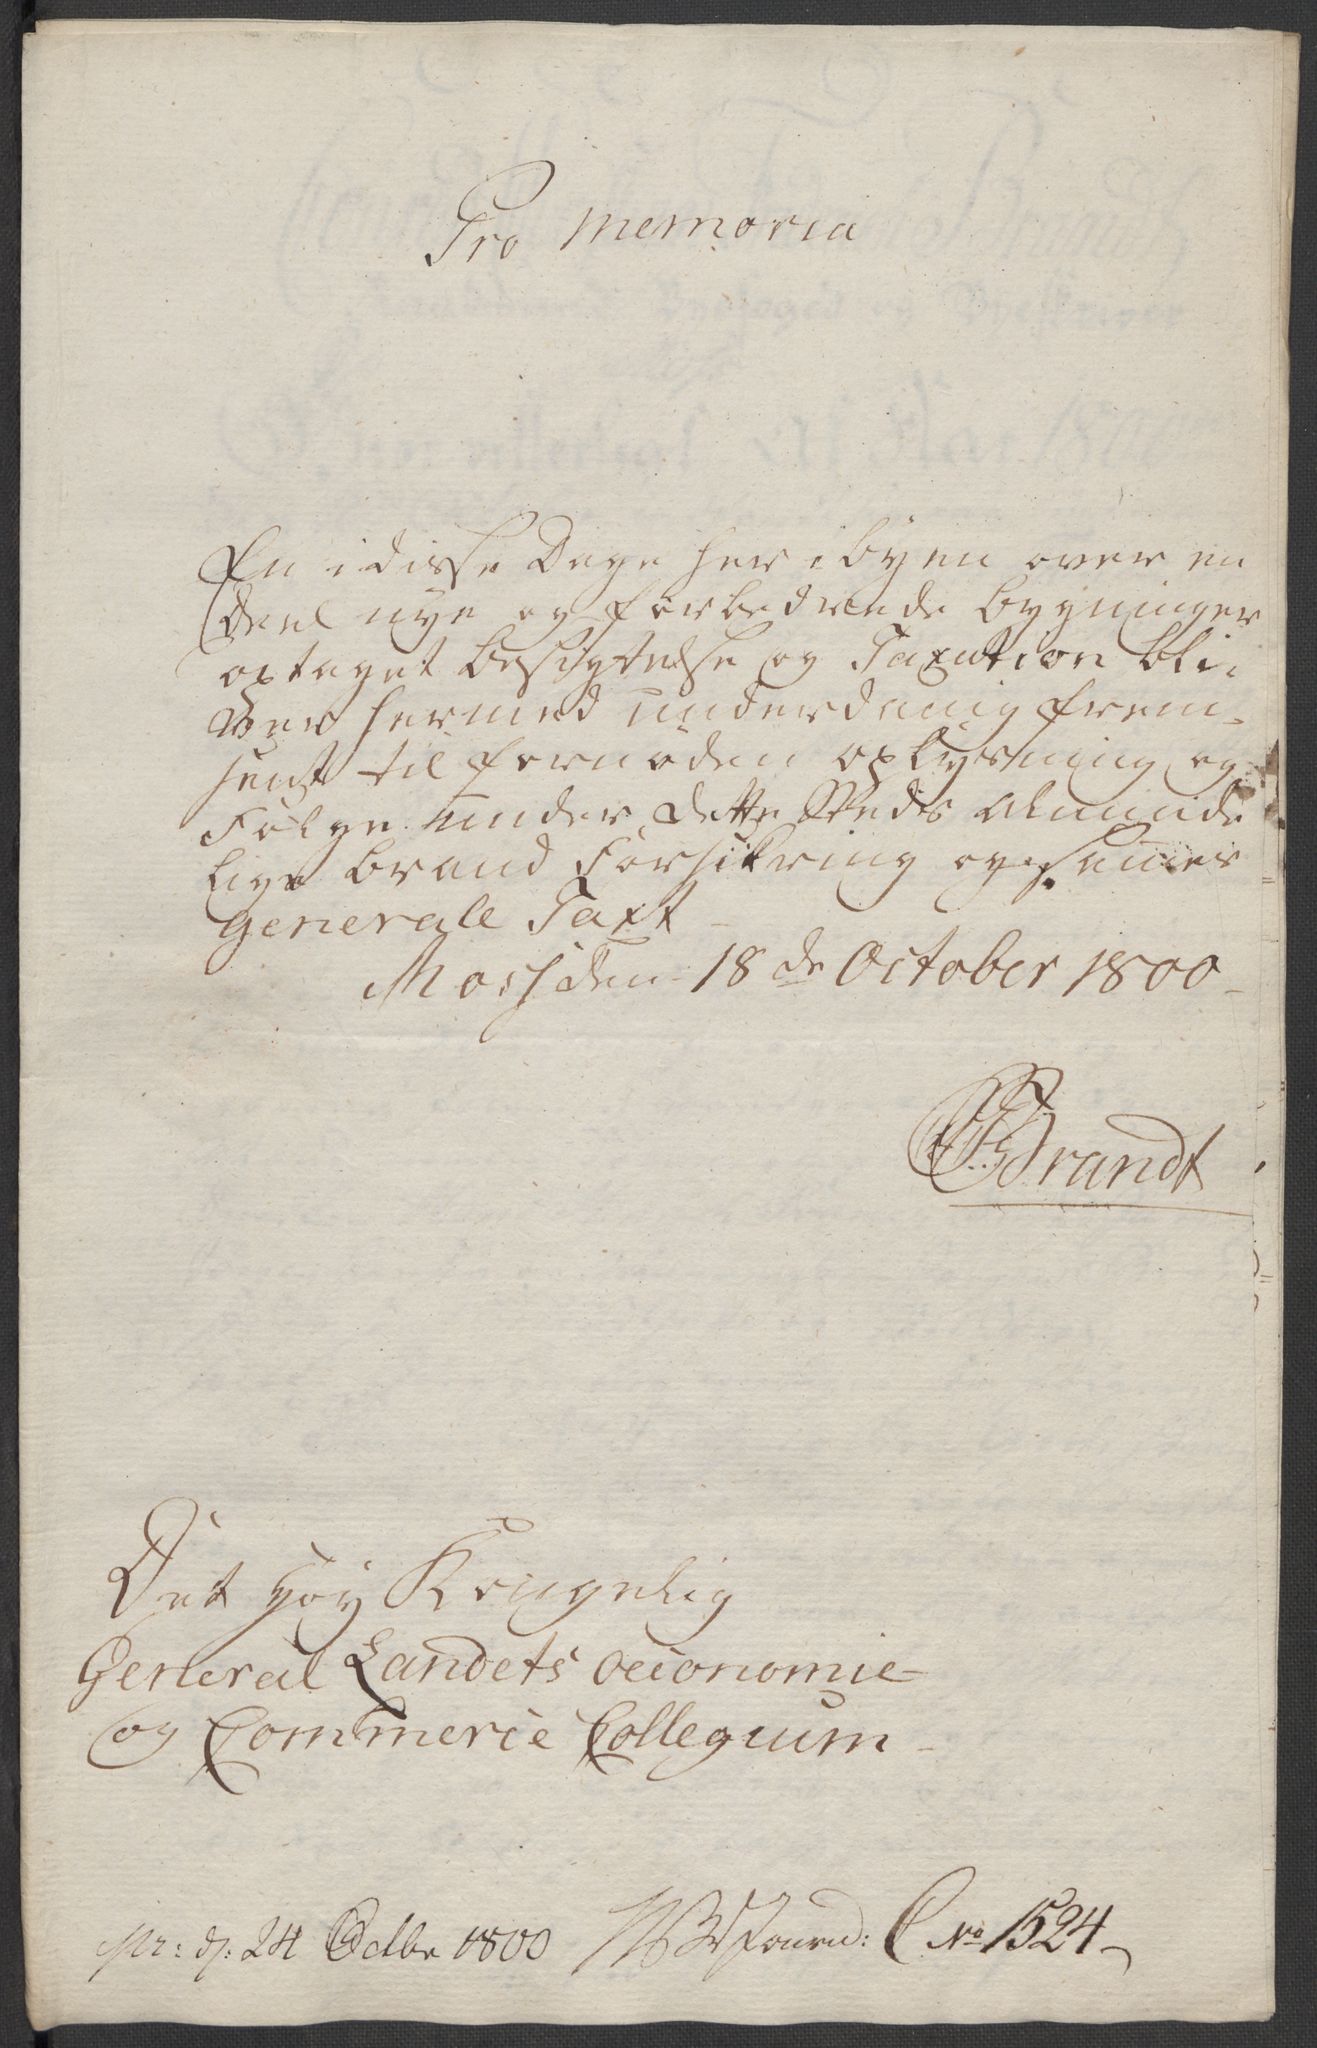 Pro memoria
En i disse Dage her i byen over en
Deel nye og forbedrede bygninger
optaget besigtelse og Taxation bli-
ver hermed underdanig frem-
sent til fornøden oplysning og
Følge under dette Steds alminde
lige brand Forsikring og sammes
generale Taxt
Moss den 18de October 1800
Brandt
Det Høy Kongelig
General Landets Oeconomie-
og Commerce Collegium
pr: d: 24 Octbr 1800 Journ: C No 1524